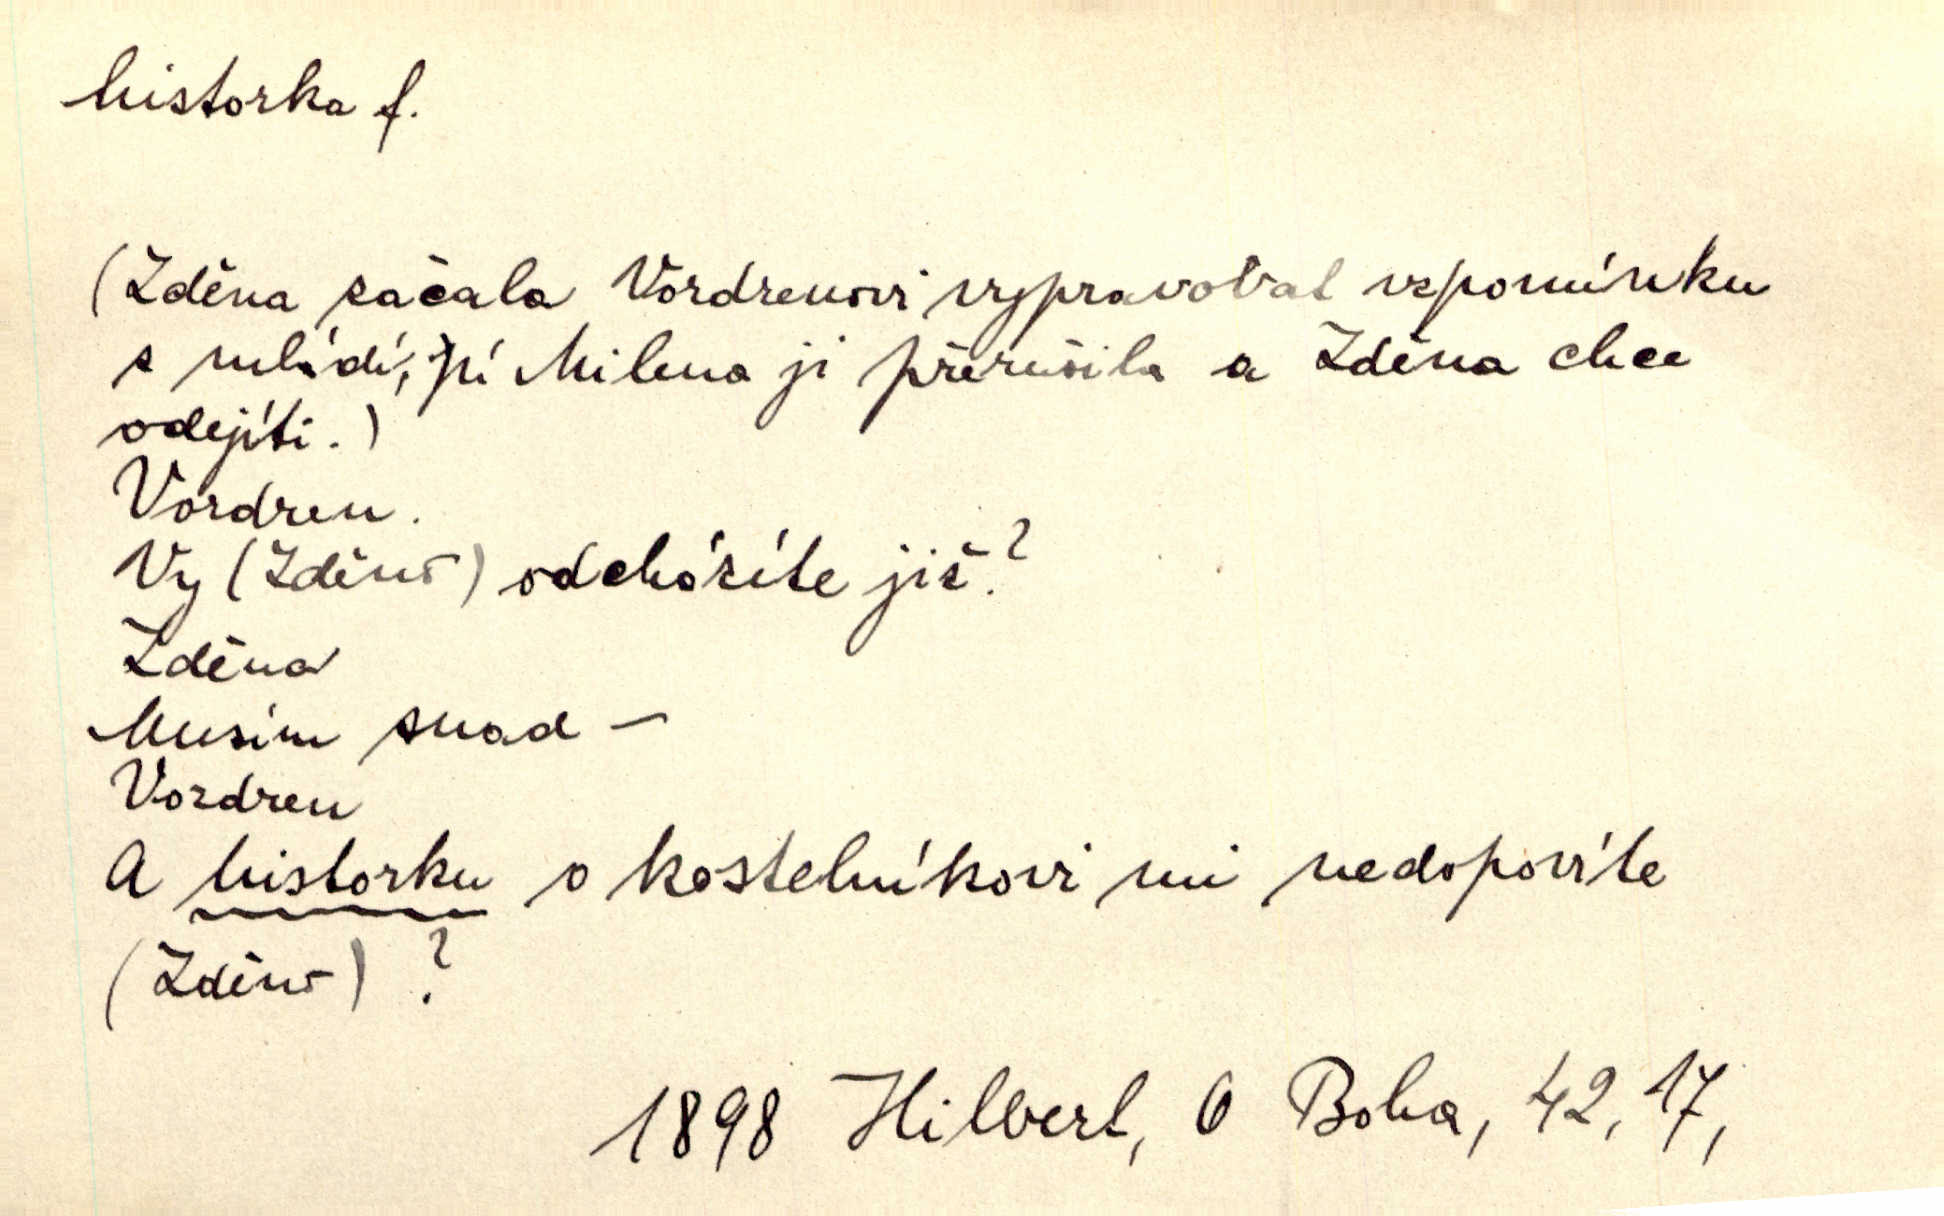 historka f.
(Zděna začala Vordrenovi vypravovat vzpomínku
z mládí, pí Milena ji přerušila a Zděna chce
odejíti.)
Vordren.
Vy (Zděno) odcházíte již?
Zděna
Musím snad —
Vordren
A historku o kostelníkovi mi nedopovíte
(Zděno) ?
1898 Hilbert, O Boha, 42, 17,